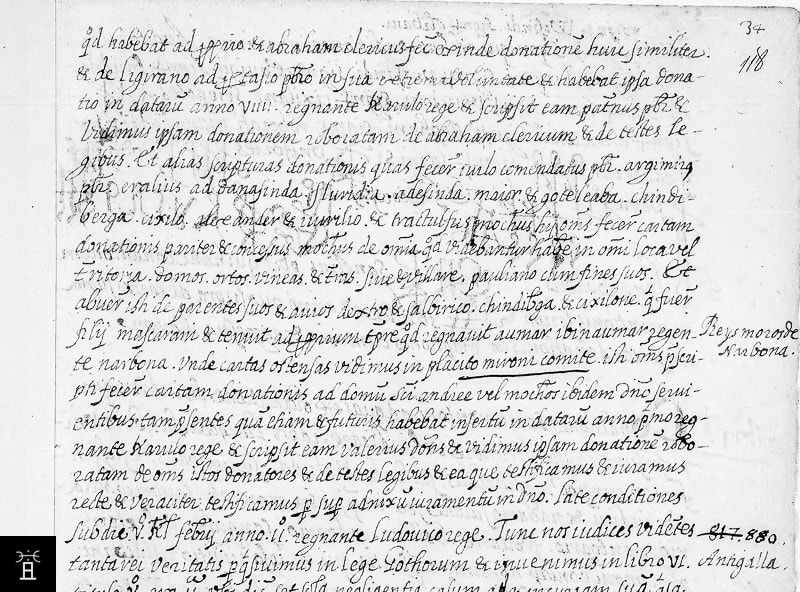 34
118
q̄d habebat ad ꝓprio. & abraham clericus fec̄ exinde donationē huic similiter.
& de ligirano ad protasio pb̄ro in sua extrema voluntate & habebat ipsa dona-
tio in dataru anno viiii. regnante Karulo rege & scripsit eam pbr̄ &
vidimus ipsam donationem roboratam. de abraham clericum & de testes le-
gibus. Et alias scripturas donationis quas fecer̄ comendatus pbr̄. argimirꝯ
pbr̄. eralius ad danasinda. fluridia. adesinda. maior. & goteleaba. chindi-
berga. cixilo. alexander & & tractulfus mochus hij oms̄ fecer̄ cartam
donationis pariter & concessus mochus de omia q̄d videbantur hab̄e in omī loca vel
t̄ritoria. domos. ortos. vineas. & t̄ras. sive & villare. pauliano cum fines suos. Et
abuer̄ isti de parentes suos & avios dextro & salbirico. chindib̄ga & cixilone. q̄ fuer̄
filij mascaram & tenuit ad ꝓprium t̄pre q̄d regnavit aumar ibin aumar regen-
Reys moros de
Narbona.
te narbona. Unde cartas ostensas vidimus in placito mironi comite. isti om̄s p̄scri-
pti fecer̄ cartam donationis ad domū sc̄i andree vel mochos ibidem dn̄o servi-
entibus tam p̄sentes quā etiam & futuris habebat insertū in datarū anno p̄mo reg-
nante Karulo rege & scripsit eam valerius & vidimus ipsam donationē robo-
ratam de om̄s istos donatores & de testes legibus & ea que testificamus & iuramus
recte & veraciter testificamus p̄ sup̄ adnixū iuramentū in dn̄o. Late conditiones
subdie v. Kl̄ febrij anno. ii. regnante Ludovico rege. Tunc nos iudices vidētes
817. 880.
tanta rei veritatis p̄q̄sivimus in lege Gothorum & invenimus in libro VI.
Antigalla.
negligentia